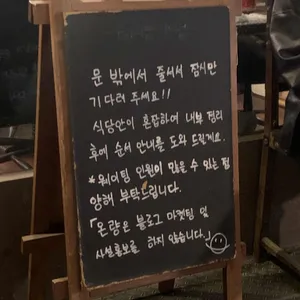 문 밖에서 줄서서 잠시만
기다려 주세요!!
식당안이 혼잡하여 내부 정리
후에 순서 안내를 도와 드릴게요.
*웨이팅 인원이 많을 수 있는 점
양해 부탁드립니다.
「온량은 블로그 마켓팅 및
사설홍보를 하지 않습니다.」